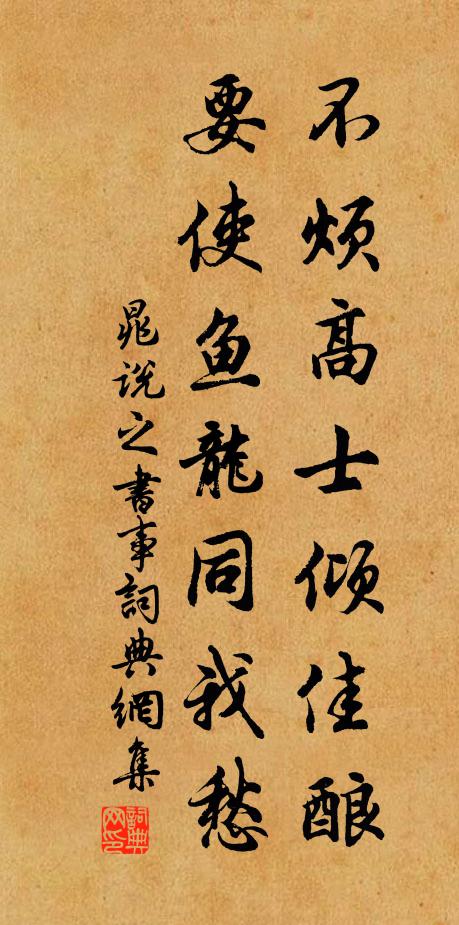 不烦高士倾佳酿
要使鱼龍同我愁
晁说之書事詞典網集
詞典网印